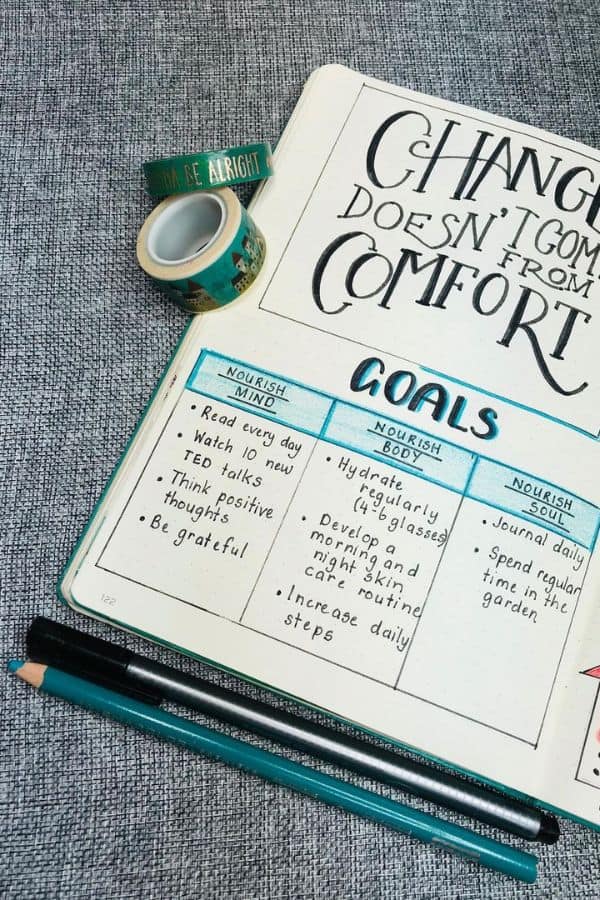 NNA BE ALRIGHT
CHANGE
DOESN'T COM
FROM
COMFORT
GOALS
NOURISH
MIND
• Read every day
• Watch 10 new
TED talks
• Think positive
thoughts
• Be grateful
NOURISH
BODY
• Hydrate
regularly
(4-6 glasses)
• Develop a
morning and
night skin
care routine
• Increase daily
steps
NOURISH
SOUL
• Journal daily
• Spend regular
time in the
garden
122